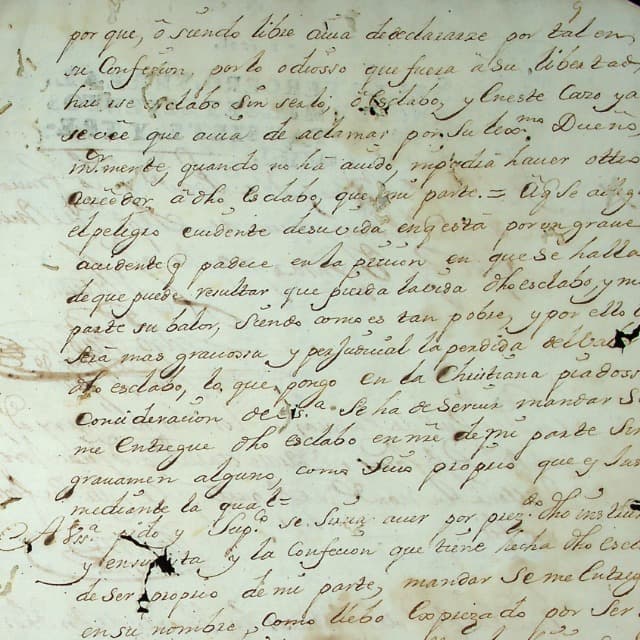 por que, ô siendo libre avia de declararse por tal en
su Confecion, por lo odiosso que fuera â su libertad
hacerse esclabo sin serlo; ô Esclabo, y en este Cazo ya
se vêe que avia de aclamar por su lexmo. Dueño
mrmente, quando no ha avido, ni podia haver otro
acreêdor â dho Esclabo, que mi parte. = se
el peligro evidente de su vida en q está por un grave
accidente q padece en la pricion en que se halla
de que puede resultar que pierda la vida dho esclabo, y mi
parte su balor, siendo como es tan pobre, y por ello le
será mas gravossa y perjudicial la perdida del
dho esclabo, lo que pongo en la Christiana piadossa
Concideracion de Vs.a Se ha de servir mandar Se
me Entregue dho esclabo en nre de mi parte sin
gravamen alguno, como suio propio que es
mediante la qual
A Vs.a pido y Supco. se sirva aver por prezdo. dho
y en su vista y la Confecion que tiene hecha dho Escl
de ser propio de mi parte, mandar se me Entreg
en su nombre, Como llebo Exprezado por ser